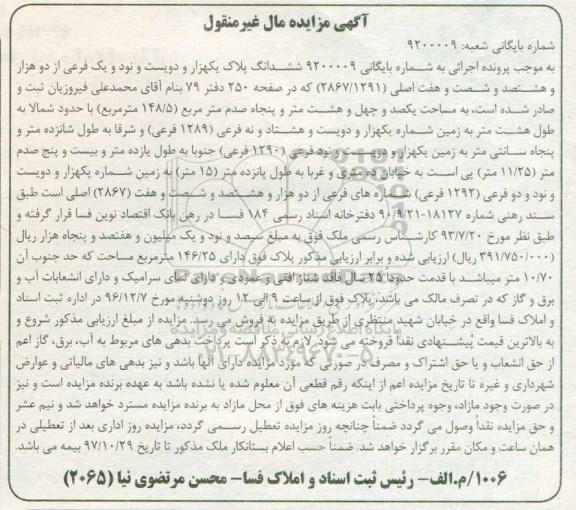 آگهی مزایده مال غیرمنقول
شماره بایگانی شعبه: ۹۲۰۰۰۰۹
به موجب پرونده اجرائی به شماره بایگانی ۹۲۰۰۰۰۹ ششدانگ پلاک یکهزار و دویست و نود و یک فرعی از دو هزار
و هشتصد و شصت و هفت اصلی (۲۸۶۷/۱۲۹۱) که در صفحه ۲۵۰ دفتر ۷۹ بنام آقای محمدعلی فیروزیان ثبت و
صادر شده است، به مساحت یکصد و چهل و هشت متر و پنجاه صدم متر مربع (۱۴۸/۵ مترمربع) با حدود شمالا به
طول هشت متر به زمین شماره یکهزار و دویست و هشتاد و نه فرعی (۱۲۸۹ فرعی) و شرقا به طول شانزده متر و
پنجاه سانتی متر به زمین یکهزار و دویست و نود فرعی (۱۲۹۰ فرعی) جنوبا به طول یازده متر و بیست و پنج صدم
متر (۱۱/۲۵ متر) پی است به خیابان ده متری و غربا به طول پانزده متر (۱۵ متر) به زمین شماره یکهزار و دویست
و نود و دو فرعی (۱۲۹۲ فرعی) شماره های فرعی از دو هزار و هشتصد و شصت و هفت (۲۸۶۷) اصلی است طبق
سند رهنی شماره ۱۸۱۲۷-۹۰/۹/۲۱ دفترخانه اسناد رسمی ۱۸۴ فسا در رهن بانک اقتصاد نوین فسا قرار گرفته و
طبق نظر مورخ ۹۳/۷/۲۰ کارشناس رسمی ملک فوق به مبلغ سیصد و نود و یک میلیون و هفتصد و پنجاه هزار ریال
(۳۹۱/۷۵۰/۰۰۰ ریال) ارزیابی شده و برابر ارزیابی مذکور پلاک فوق دارای ۱۴۶/۲۵ مترمربع مساحت که حد جنوب آن
۱۰/۷۰ متر میباشد با قدمت حدودا ۲۵ سال فاقد شناژ افقی و عمودی و دارای نمای سرامیک و دارای انشعابات آب و
برق و گاز که در تصرف مالک می باشد، پلاک فوق از ساعت ۹ الی ۱۲ روز دوشنبه مورخ ۹۶/۱۲/۷ در اداره ثبت اسناد
و املاک فسا واقع در خیابان شهید منتظری از طریق مزایده به فروش می رسد. مزایده از مبلغ ارزیابی مذکور شروع و
به بالاترین قیمت پیشنهادی نقدا فروخته می شود. لازم به ذکر است پرداخت بدهی های مربوط به آب، برق، گاز اعم
از حق انشعاب و یا حق اشتراک و مصرف در صورتی که مورد مزایده دارای آنها باشد و نیز بدهی های مالیاتی و عوارض
شهرداری و غیره تا تاریخ مزایده اعم از اینکه رقم قطعی آن معلوم شده یا نشده باشد به عهده برنده مزایده است و نیز
در صورت وجود مازاد، وجوه پرداختی بابت هزینه های فوق از محل مازاد به برنده مزایده مسترد خواهد شد و نیم عشر
و حق مزایده نقدا وصول می گردد ضمنا چنانچه روز مزایده تعطیل رسمی گردد، مزایده روز اداری بعد از تعطیلی در
همان ساعت و مکان مقرر برگزار خواهد شد. ضمنا حسب اعلام بستانکار ملک مذکور تا تاریخ ۹۷/۱۰/۲۹ بیمه می باشد.
۱۰۰۶/م.الف- رئیس ثبت اسناد و املاک فسا- محسن مرتضوی نیا (۲۰۶۵)